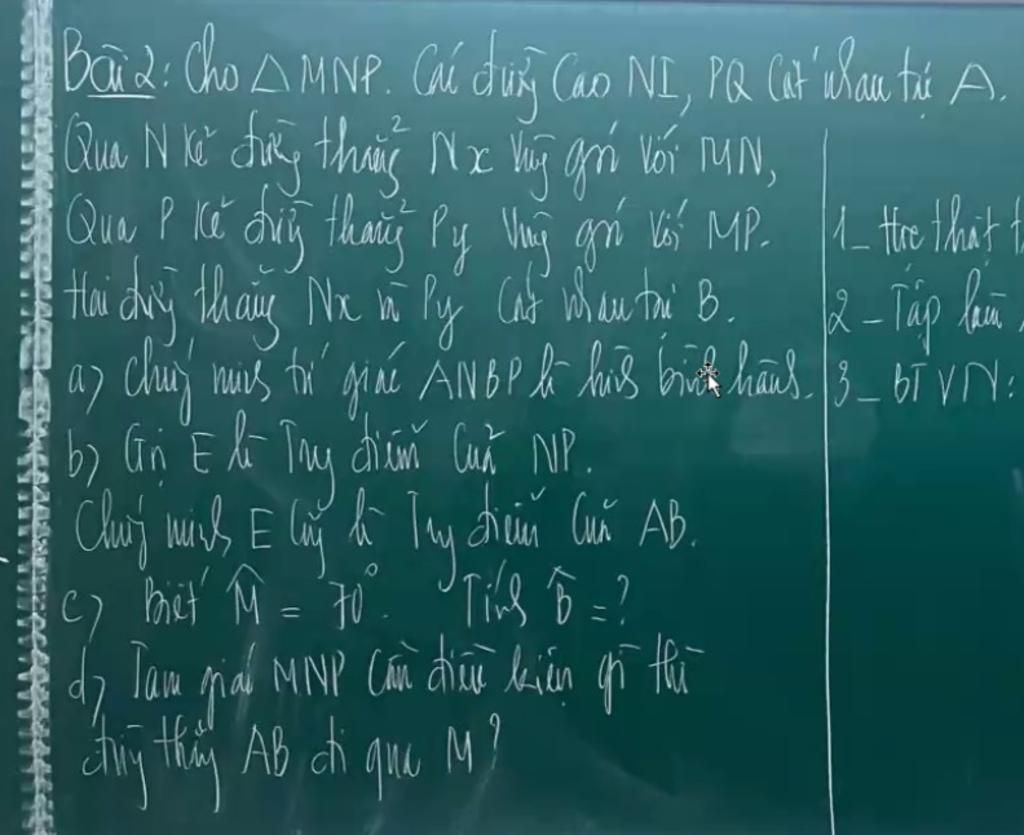 Bài 2: Cho △MNP. Các đường cao NI, PQ cắt nhau tại A.
Qua N kẻ đường thẳng Nx vuông góc với MN,
Qua P kẻ đường thẳng Py vuông góc với MP.
Hai đường thẳng Nx và Py cắt nhau tại B.
a) Chứng minh tứ giác ANBP là hình bình hành.
b) Gọi E là Trung điểm của NP.
Chứng minh E cũng là Trung điểm của AB.
c) Biết M̂ = 70°. Tính B̂ = ?
d) Tam giác MNP cần điều kiện gì thì
đường thẳng AB đi qua M?
1_ Học thật
2_ Tập làm
3_ BTVN: